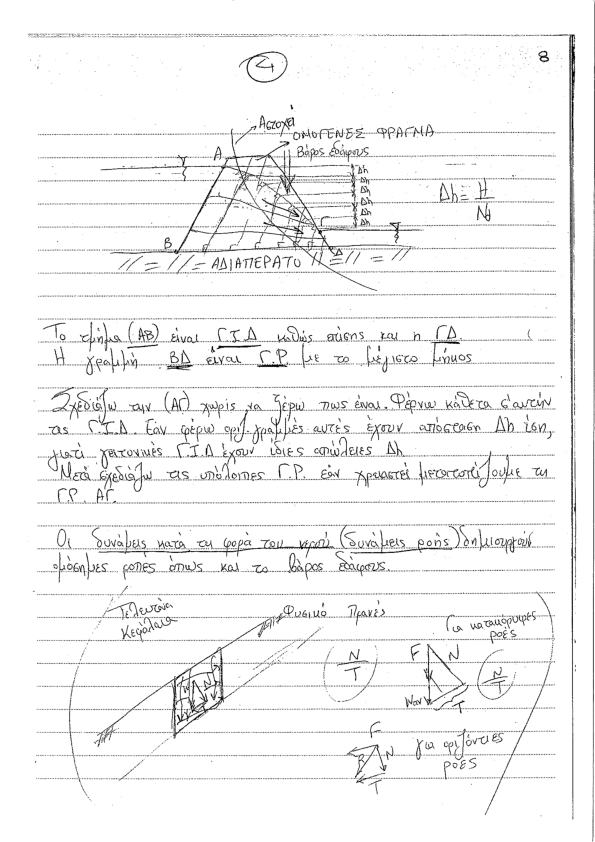 4
8
Αστοχεί
ΟΜΟΓΕΝΕΣ ΦΡΑΓΜΑ
Βάρος εδάφους
Α
Δh
Δh
Δh
Δh
Δh
Δh
Δh = H / Nd
Γ
Β
Δ
ΑΔΙΑΠΕΡΑΤΟ
Το τμήμα (ΑΒ) είναι Γ.Ι.Δ καθώς επίσης και η ΓΔ.
Η γραμμή ΒΔ είναι Γ.Ρ με το μέγιστο μήκος
Σχεδιάζω την (ΑΓ) χωρίς να ξέρω πως είναι. Φέρνω κάθετα σ'αυτήν
τις Γ.Ι.Δ. Εάν φέρω οριζ. γραμμές αυτές έχουν απόσταση Δh ίση,
γιατί γειτονικές Γ.Ι.Δ έχουν ίδιες απώλειες Δh
Μετά σχεδιάζω τις υπόλοιπες Γ.Ρ. εάν χρειαστεί μετατοπίζουμε τη
Γ.Ρ. ΑΓ.
Οι δυνάμεις κατά τη φορά του νερού (δυνάμεις ροής) δημιουργούν
ομόσημες ροπές όπως και το βάρος εδάφους.
Τελευταία
Κεφάλαια
Φυσικό Πρανές
Για κατακόρυφες
ροές
N
T
F
N
Wαν
T
N
T
F
N
B
T
για οριζόντιες
ροές